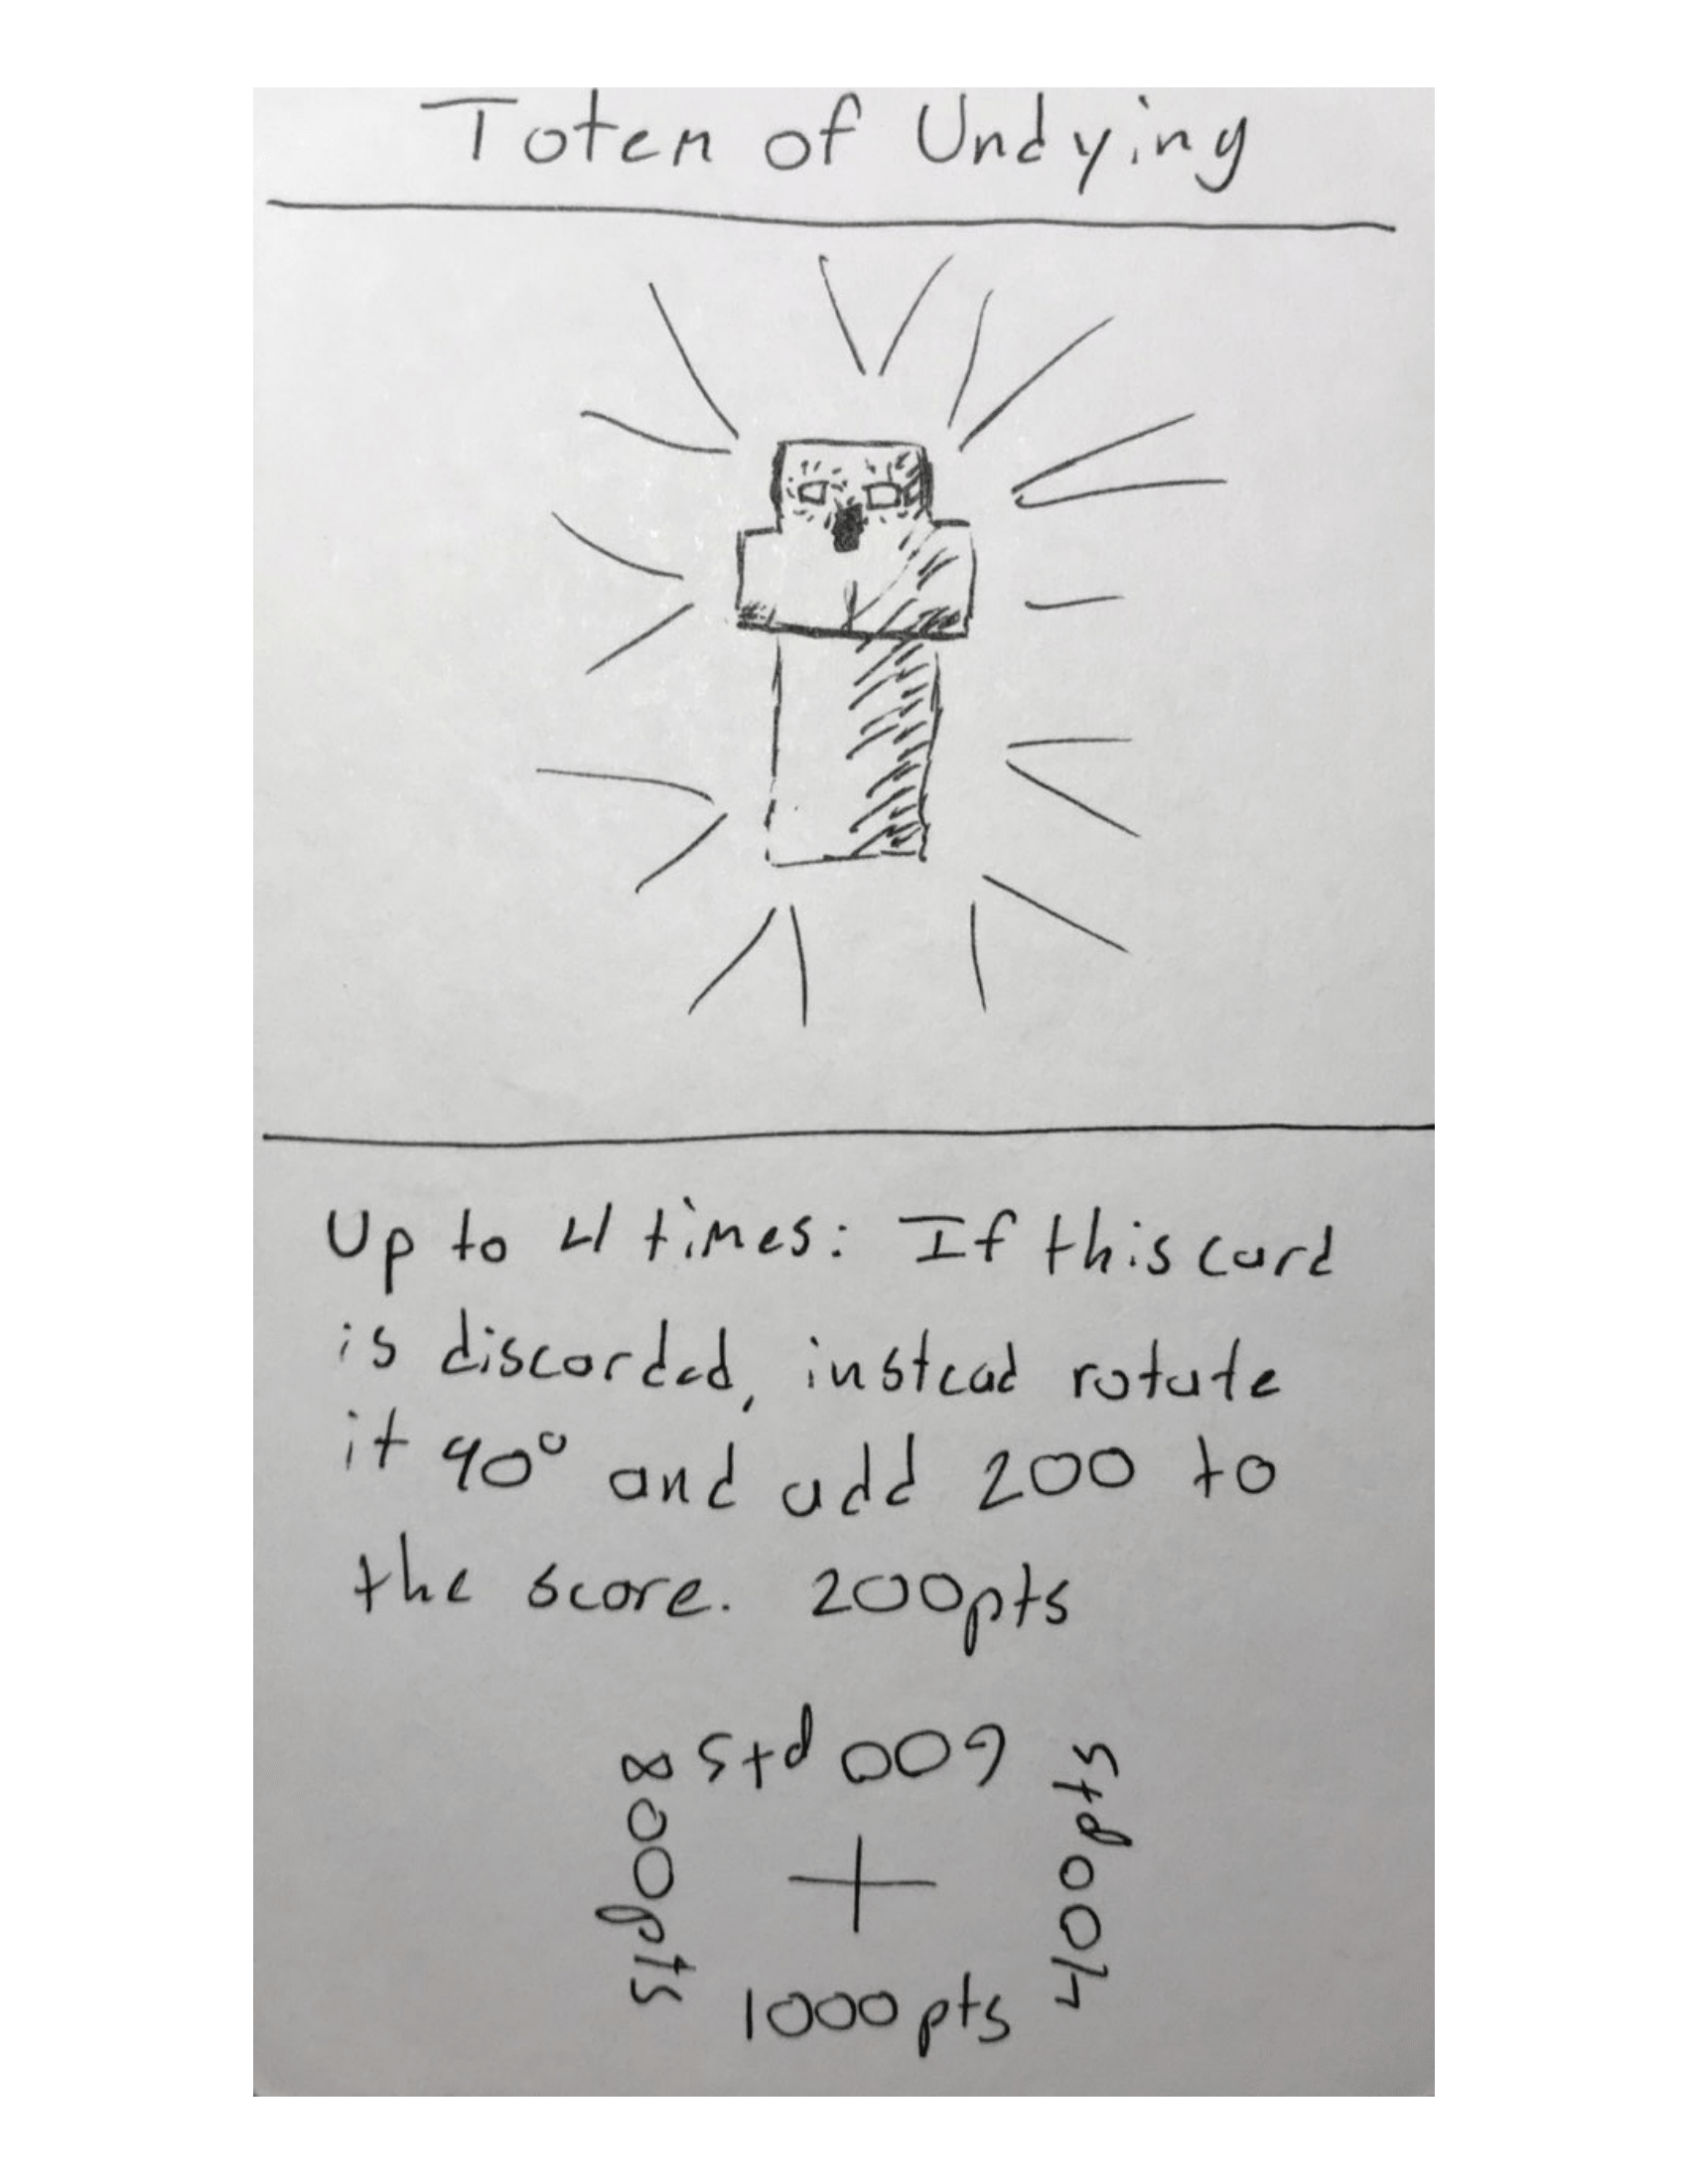 Totem of Undying
Up to 4 times: If this card
is discarded, instead rotate
it 90° and add 200 to
the score. 200pts
600 pts
800pts
400pts
1000 pts